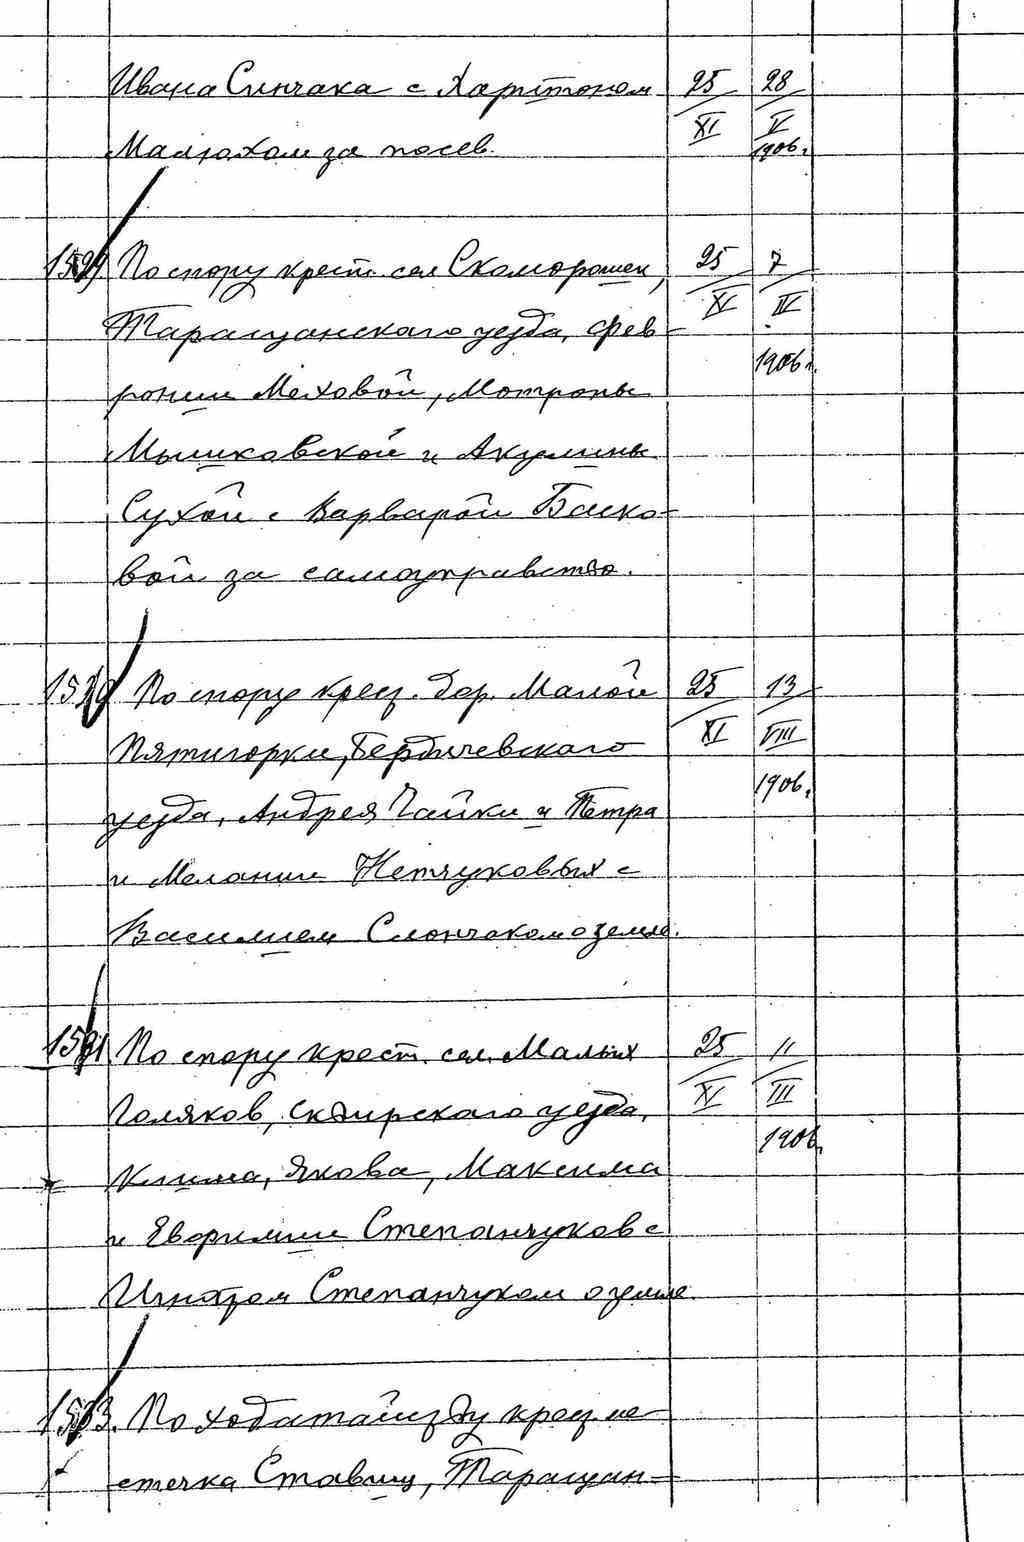 Ивана Синчака с Харитоном 25/XI 28/V
Малюхом за посев. 1906 г.
1529 По спору крест. сел Скоморошек, 25/XI 7/IV
Таращанского уезда, Фев- 1906 г.
ронии Меховой, Мотроны
Мышковской и Акулины
Сухой с Варварой Баско-
вой за самоуправство.
По спору крест. дер. Малой 25/XI 13/VIII
Пятигорки, Бердичевского 1906 г.
уезда, Андрея Чайки и Петра
и Мелании Нетчуковых с
Василием Слончаком о земле.
По спору крест. сел. Малых 25/XI 11/III
Голяков, Сквирского уезда, 1906 г.
Клима, Якова, Максима
и Евфимии Степанчуков с
Игнатом Степанчуком о земле.
По ходатайству крест. ме-
стечка Ставищ, Таращан-